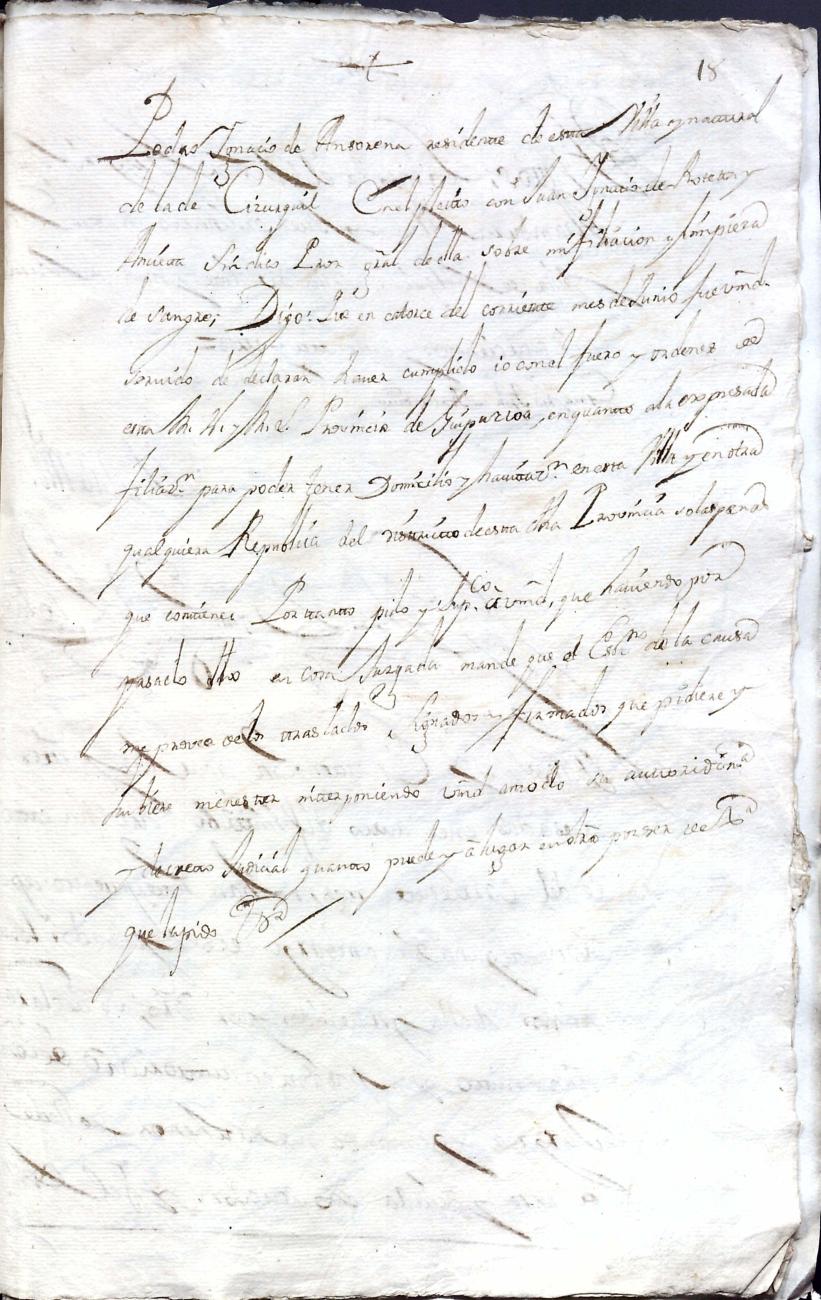 18
Pedro Ignacio de Ansorena residente de esta Villa y natural
de la de Cizurquil En el pleito con Juan Ignacio de Roteta y
Síndico Pror gral de ella sobre mi filiacion y limpieza
de sangre; Digo: Que en catorce del corriente mes de Junio fue Vmd.
servido de declarar haver cumplido io con el fuero y ordenes de
esta M. N. y M. L. Provincia de Guipuzcoa, en quanto a la expresada
filiazn. para poder tener Domicilio y havitazn. en esta Villa y en otra
qualquiera Republica del districto de esta dha Provincia so las penas
que contiene: Por tanto pido y Supco. a Vmd, que haviendo por
pasado dho en cosa Juzgada mande que el Essno. de la causa
me provea de los traslados signados y firmados que pidiere y
hubiere menester interponiendo Vmd a su autoridad
y decreto Judicial quanto puede y a lugar en dro por ser de Jusa
que la pido